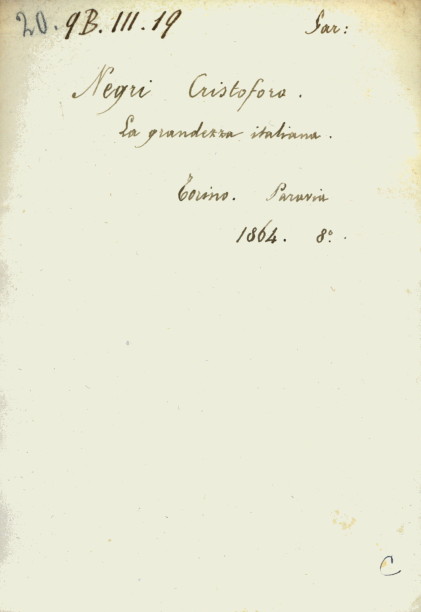 20. 9B. III. 19 Gar:
Negri Cristoforo.
La grandezza italiana.
Torino. Paravia
1864. 8°.
C